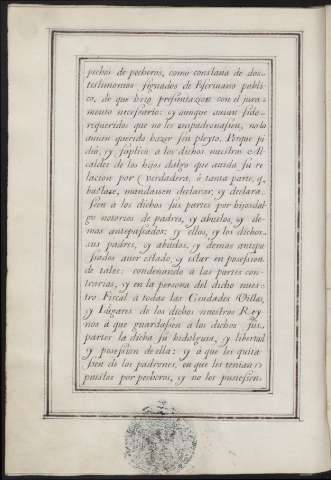 pechos de pecheros, como constaua de dos
testimonios signados de Escriuano publi-
co, de que hizo presentazion con el jura-
mento necesario: y aunque auian sido
requeridos que no les empadronasen, no lo
auian querido hazer sin pleyto. Porque pi-
dió, y suplico a los dichos nuestros Al-
caldes de los hijos dalgo que auida su re-
lacion por verdadera, ó tanta parte, q.
bastase, mandasen declarar, y declara-
sen á los dichos sus partes por hijosdal-
go notorios de padres, y abuelos, y de-
mas antepasados: y ellos, y los dichos
sus padres, y abuelos, y demas antepa-
sados auer estado, y estar en posesion
de tales: condenando á las partes con-
trarias, y en la persona del dicho nues-
tro Fiscal á todas las Ciudades Villas,
y Lugares de los dichos nuestros Rey-
nos á que guardasen á los dichos sus
partes la dicha su hidalguia, y libertad
y posesion de ella: y á que les quita-
sen de los padrones, en que les tenian
puestos por pecheros, y no les pusiesen